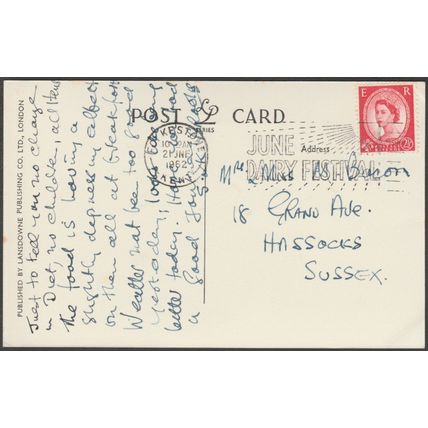 POST CARD
LP
SERIES
E R
2½D
FOLKESTONE
10 AM
21 JNE
1962
KENT
JUNE
DAIRY FESTIVAL
Address
Mr & Miss
18 GRAND AVE.
HASSOCKS
SUSSEX.
PUBLISHED BY LANSDOWNE PUBLISHING CO. LTD., LONDON
Just to tell you no change
in Diet, no children, all
the food is having a
slightly depressing effect
on them all at breakfast
Weather not been too good
yesterday, looks
better today. Hope you had
a good journey